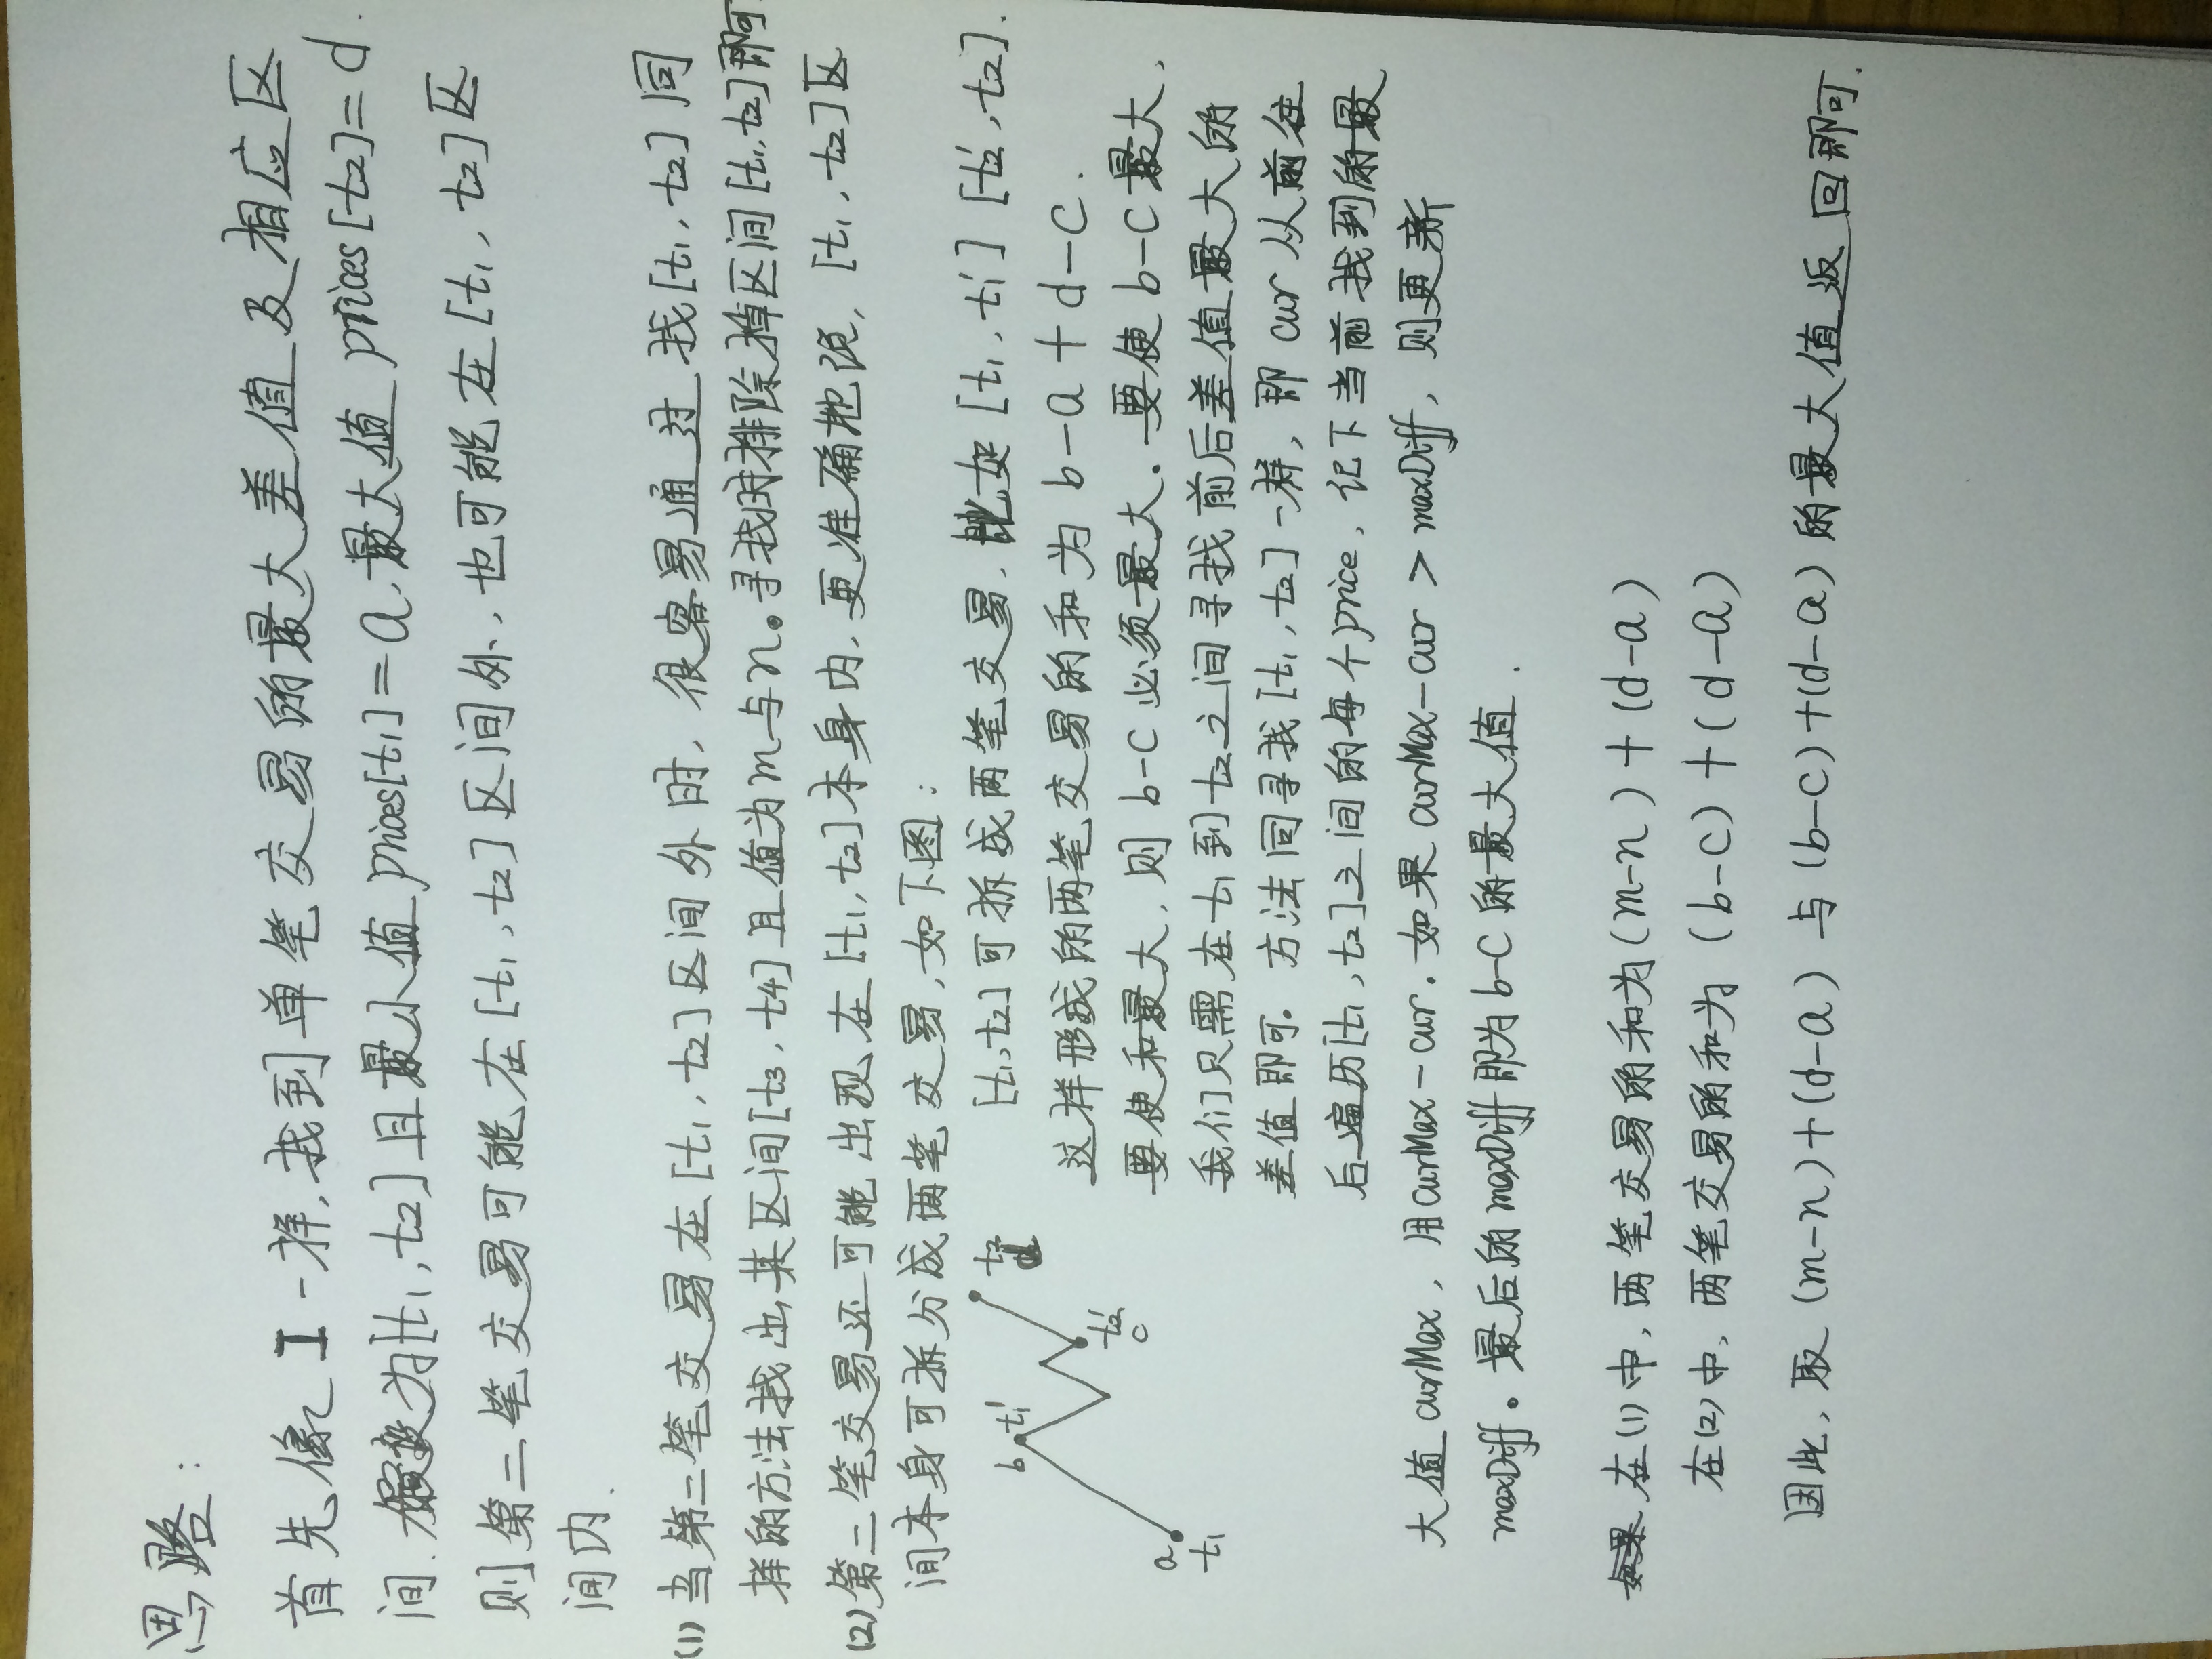 思路:
首先像 I 一样,找到单笔交易的最大差值及相应区
间.假设为[t1,t2]且最小值 prices[t1]=a,最大值 prices[t2]=d.
则第二笔交易可能在[t1,t2]区间外,也可能在[t1,t2]区
间内.
(1) 当第二笔交易在[t1,t2]区间外时,很容易通过找[t1,t2]同
样的方法找出某区间[t3,t4]且值为m与n。寻找时排除掉区间[t1,t2]即可
(2) 第二笔交易还可能出现在[t1,t2]本身内,更准确地说,[t1,t2]区
间本身可拆分成两笔交易,如下图:
b t1'
t2
d
t2'
c
a
t1
[t1,t2]可拆成两笔交易,比如[t1,t1'] [t2',t2].
这样形成的两笔交易的和为 b-a+d-c.
要使和最大,则 b-c 必须最大。要使 b-c 最大,
我们只需在t1到t2之间寻找前后差值最大的
差值即可。方法同寻找[t1,t2]一样,即 cur 从前往
后遍历[t1,t2]之间的每个price,记下当前找到的最
大值 curMax,用curMax-cur.如果 curMax-cur > maxDiff,则更新
maxDiff。最后的maxDiff即为b-c的最大值.
如果 在(1)中,两笔交易的和为(m-n)+(d-a)
在(2)中,两笔交易的和为 (b-c)+(d-a)
因此,取 (m-n)+(d-a) 与 (b-c)+(d-a) 的最大值返回即可.